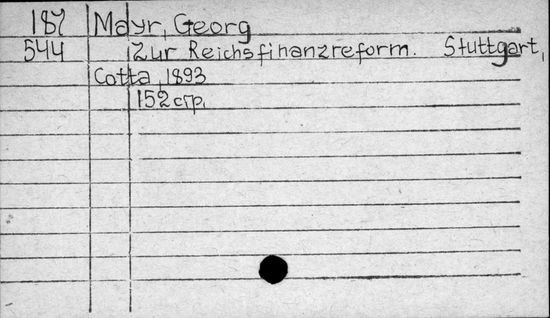 187 Mayr, Georg
544 Zur Reichsfinanzreform. Stuttgart,
Cotta, 1893
152 стр.